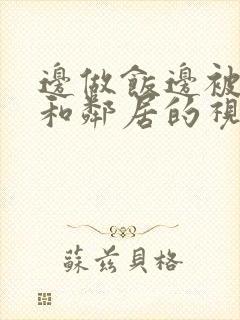 邊做飯邊被
和鄰居的視
蘇茲貝格